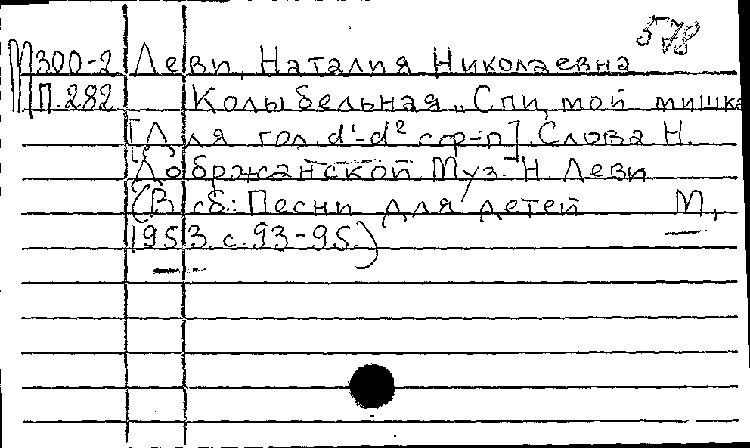 578
М300-2 Леви, Наталия Николаевна
П.282 Колыбельная „Спи, мой мишка
[Для гол. d¹-d² с ф-п]. Слова Н.
Добржанской. Муз. Н. Леви
(В сб: Песни для детей М,
1953. с. 93-95.)